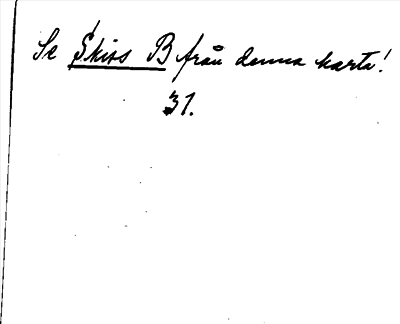 Se Skiss B från denna karta!
31.